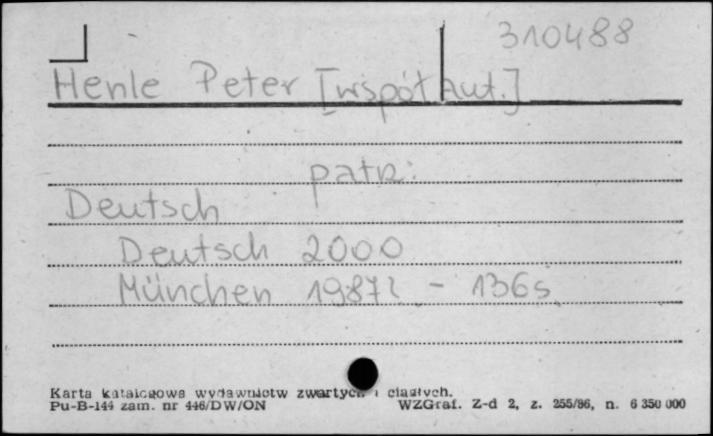 310488
Henle Peter [współaut.]
patrz:
Deutsch
Deutsch 2000
München 1987r - 136s
Karta katalogowa wydawnictw zwartych i ciągłych.
Pu-B-144 zam. nr 446/DW/ON WZGraf. Z-d 2, z. 255/86, n. 6 350 000